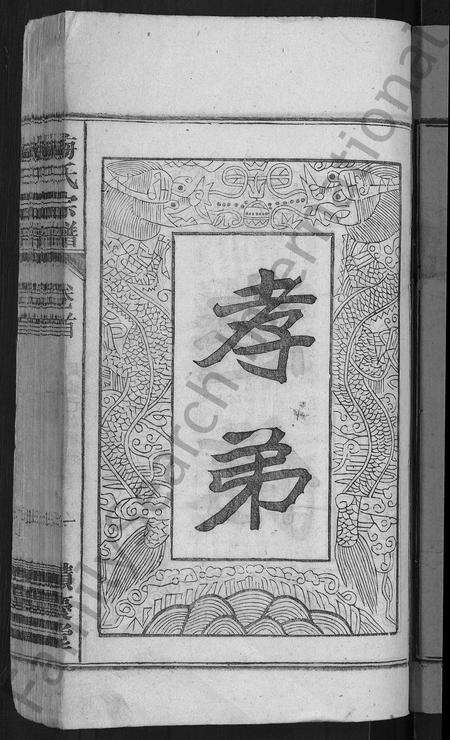 孝弟
氏宗譜
卷首
一
FamilySearch International